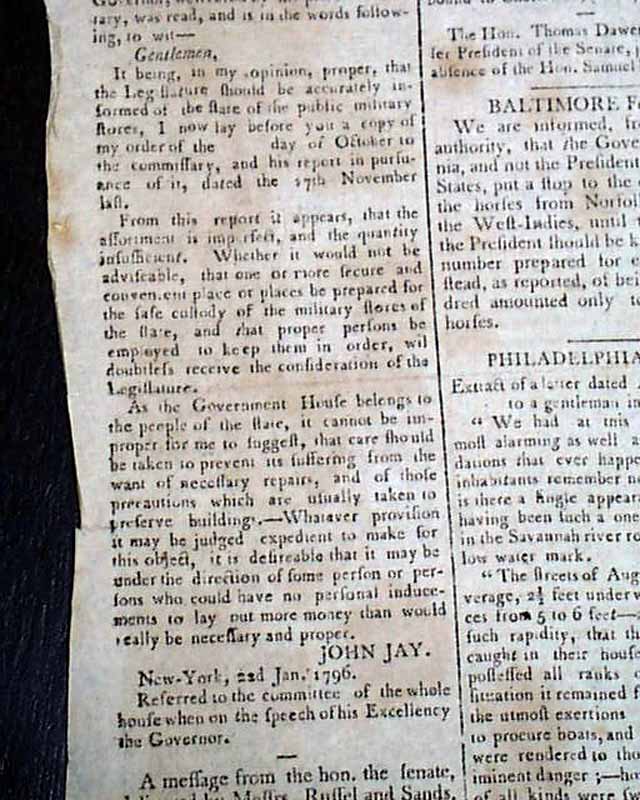 tary, was read, and is in the words follow-
ing, to wit—
Gentlemen,
It being, in my opinion, proper, that
the Legiſlature ſhould be accurately in-
formed of the ſtate of the public military
ſtores, I now lay before you a copy of
my order of the day of October to
the commiſſary, and his report in purſu-
ance of it, dated the 17th November
laſt.
From this report it appears, that the
aſſortment is imperfect, and the quantity
inſufficient. Whether it would not be
adviſeable, that one or more ſecure and
convenient place or places be prepared for
the ſafe cuſtody of the military ſtores of
the ſtate, and that proper perſons be
employed to keep them in order, wil
doubtleſs receive the conſideration of the
Legiſlature.
As the Government Houſe belongs to
the people of the ſtate, it cannot be im-
proper for me to ſuggeſt, that care ſhould
be taken to prevent its ſuffering from the
want of neceſſary repairs, and of thoſe
precautions which are uſually taken to
preſerve buildings.—Whatever proviſion
it may be judged expedient to make for
this object, it is deſireable that it may be
under the direction of ſome perſon or per-
ſons who could have no perſonal induce-
ments to lay out more money than would
really be neceſſary and proper.
JOHN JAY.
New-York, 22d Jan. 1796.
Referred to the committee of the whole
houſe when on the ſpeech of his Excellency
the Governor.
A meſſage from the hon. the ſenate,
Meſſrs. Ruſſel and Sands,
The Hon. Thomas Dawes
ſer Preſident of the Senate,
abſence of the Hon. Samuel
BALTIMORE F
We are informed, fr
authority, that the Gove
nia, and not the Preſident
States, put a ſtop to the
the horſes from Norfol
the Weſt-Indies, until
the Preſident ſhould be k
number prepared for e
ſtead, as reported, of bei
dred amounted only t
horſes.
PHILADELPHIA
Extract of a letter dated
to a gentleman in
" We had at this
moſt alarming as well a
dations that ever happe
inhabitants remember n
is there a ſingle appear
having been ſuch a one
in the Savannah river ro
low water mark.
" The ſtreets of Aug
verage, 2½ feet underw
ces from 5 to 6 feet—
ſuch rapidity, that th
caught in their houſe
poſſeſſed all ranks o
ſituation it remained f
the utmoſt exertions
to procure boats, and
were rendered to tho
iminent danger ;—ho
of all kinds were ſw